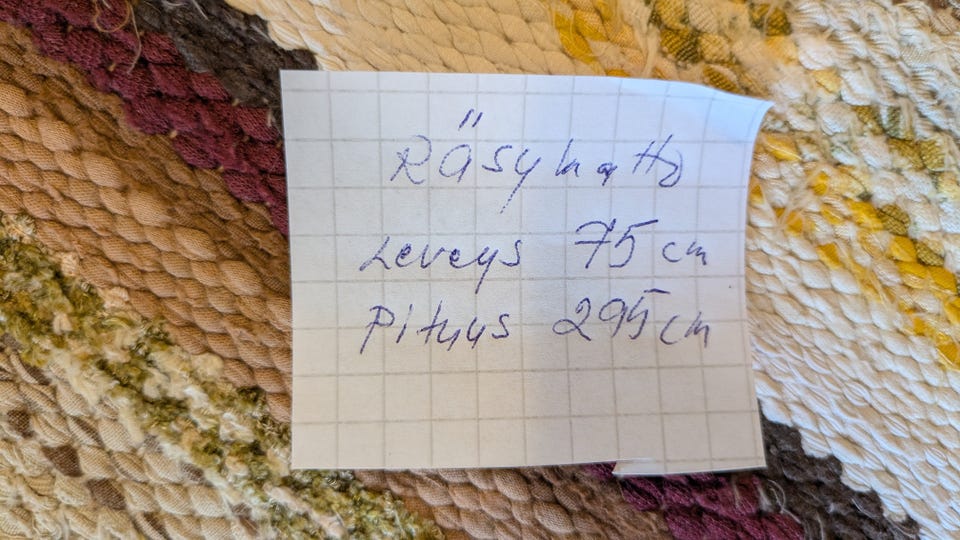 Räsymatto
Leveys 75 cm
Pituus 295 cm